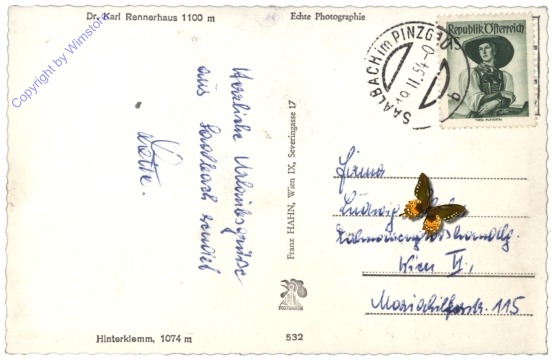 Dr. Karl Rennerhaus 1100 m
Echte Photographie
SAALBACH im PINZGAU
Republik Österreich
Copyright by Wimstore
Herzliche Urlaubsgrüße
aus Saalbach sendet
Franz HAHN, Wien IX, Severingasse 17
Firma
Ludwig
Wien VI.,
Mariahilferstr. 115
Hinterklemm, 1074 m
532